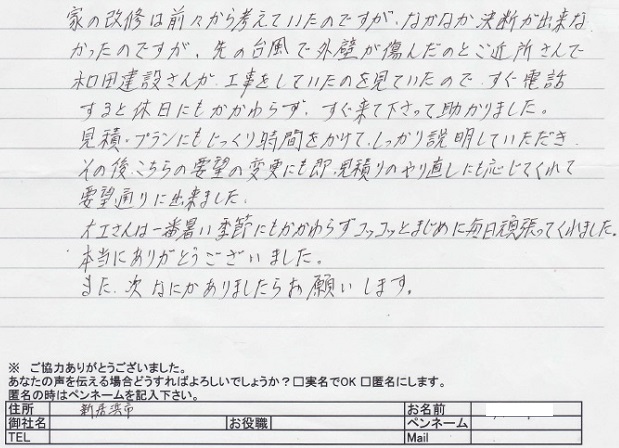 家の改修は前々から考えていたのですが、なかなか決断が出来な
かったのですが、先の台風で外壁が傷んだのとご近所さんで
和田建設さんが、工事をしていたのを見ていたので、すぐ電話
すると休日にもかかわらず、すぐ来て下さって助かりました。
見積・プランにもじっくり時間をかけて、しっかり説明していただき、
その後、こちらの要望の変更にも即、見積りのやり直しにも応じてくれて
要望通りに出来ました。
大工さんは一番暑い季節にもかかわらずコツコツとまじめに毎日頑張ってくれました。
本当にありがとうございました。
また、次なにかありましたらお願いします。
※ ご協力ありがとうございました。
あなたの声を伝える場合どうすればよろしいでしょうか?□実名でOK □匿名にします。
匿名の時はペンネームを記入下さい。
住所 新居浜市 お名前
御社名 お役職 ペンネーム
TEL Mail